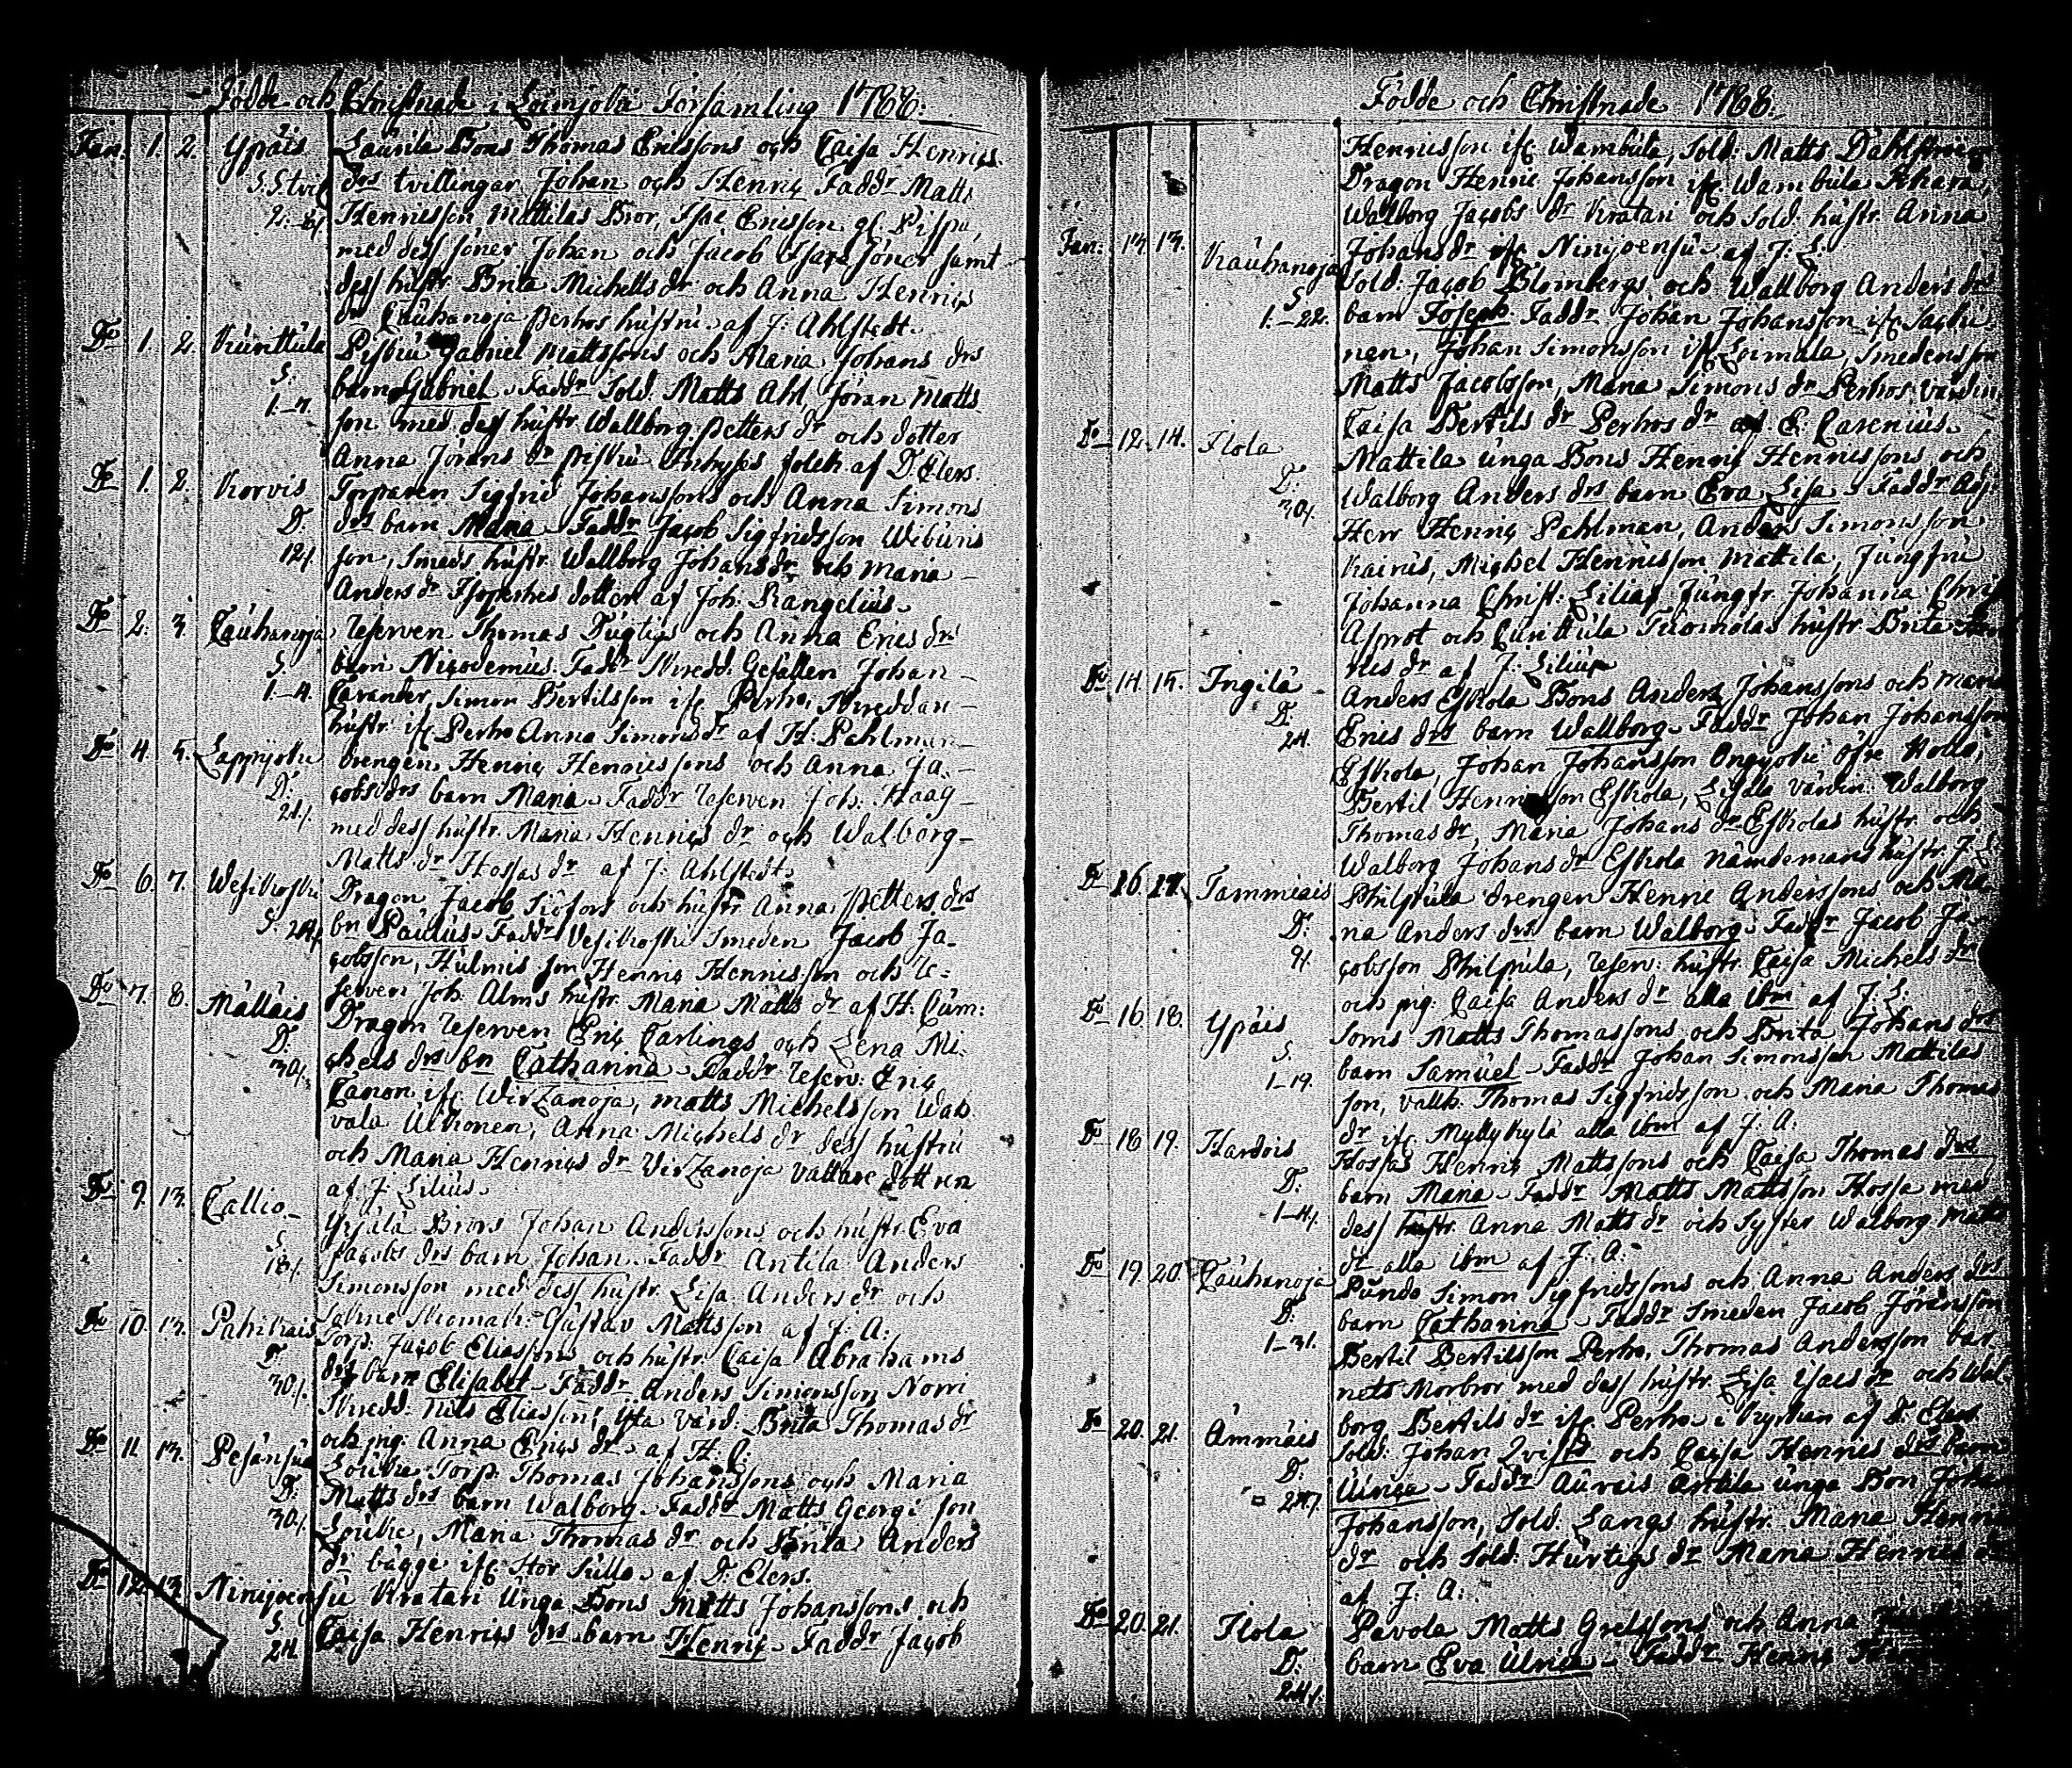 Födde och Christnade i Loimjoki Församling 1788.
Jan. 1. 2. Ypäis Laurila Bons Thomas Ericssons och Caisa Henrics
S. S. tvil drs tvillingar Johan och Henric Faddr Matts
Henricsson Mattilas Bror, Isac Ericsson gl. Pispa,
med dess söner Johan och Jacob Isacs söner samt
dess hustr Brita Michelsdr och Anna Henrics
dr Cauhanoja Perhos hustru. af J. Ahlstedt.
Do 1. 2. Kurittula Piskü Gabriel Mattssons och Maria Johans drs
S. barn Gabriel. Faddr Sold. Matts Ahl Jöran Matts
1.-4. son med dess hustr. Wallborg Petters dr och dotter
Anna Jörans dr Piskü Inhyses folck af D. Elers.
Do 1. 2. Korvis Torparen Sigfrid Johanssons och Anna Simons
D. drs barn Maria Faddr Jacob Sigfridsson
124. son, Smeds hustr Wallborg Johansdr och Maria
Anders dr dotter af Joh. Rangelius.
Do 2. 3. Cauhanoja Reserven Thomas Dugtigs och Anna Erics drs
S. barn Nicodemus Faddr Skredd. Gesällen Johan
1.-4. Cavander, Simon Bertilsson ifr. Perho, Skreddan
hustr ifr Perho Anna Simonsdr af H. Pahlman
Do 4. 5. Lappijoki drengen Henric Henricssons och Anna Ja-
D. cobs drs barn Maria. Faddr Reserven Joh. Haag
24. med dess hustr. Maria Henrics dr och Walborg
Matts dr Hossas dr af J. Ahlstedt.
Do 6. 7. Wesikoski Dragon Jacob Siöfors och hustr Anna Petters drs
S. 24. bn Paulus. Faddr Vesikoski Smeden Jacob Ja-
cobsson, Hulmis son Henric Henricsson och Re-
serven Joh. Alms hustr. Maria Matts dr af H. Cum:
Do 7. 8. Mälläis Dragon Reserven Eric Carlings och Lena Mi-
D. chels drs bn Catharina. Faddr Reserv. Eric
30. Canon ifr Wirzanoja, Matts Michelsson Wah
vala Ulkonen, Anna Michels dr dess hustru
och Maria Henrics dr Virzanoja Vattare dottren
af J. Lilius.
Do 9. 13. Callio Yrjälä Brors Johan Anderssons och hustr. Eva
S. Jacobs drs barn Johan. Faddr Antila Anders
Simonsson med dess hustr. Lisa Anders dr och
Gustav Mattsson af J. A:
Do 10. 13. Pahikais Torp. Jacob Eliassons och hustr. Caisa Abrahams
D. drs barn Elisabet. Faddr Anders Simonsson Norri
30. Skredd. Nils Eliasson, Yta värd. Brita Thomas dr
och pig. Anna Erics dr. af H. C:
Do 11. 13. Pesänsuo Torp. Thomas Johanssons och Maria
D. Matts drs barn Walborg. Faddr Matts Georgi son
30. Maria Thomas dr och Brita Anders
dr bägge ifr Stor Sillo. af D. Elers.
Do 12. 13. Ninijoensu Kratari Unga Bons Matts Johanssons och
S. 24. Caisa Henrics drs barn Henric. Faddr Jacob
Födde och Christnade 1788.
Henricsson ifr Wambula, Sold. Matts Dahlström
Dragon Henric Johansson ifr Wambula
Walborg Jacobs dr Kratari och Sold. hustr. Anna
Johansdr ifr Ninijoensu. af J. L.
Jan. 13. Kauhanoja Sold. Jacob Blombergs och Wallborg Anders drs
S. 1.-22. barn Joseph. Faddr Johan Johansson ifr
nen, Johan Simonsson ifr Loimala, Smedens son
Matts Jacobsson, Maria Simons dr Perhos värdin
Caisa Bertils dr Perhos dr af E. Carenius.
Do 12. 14. Ilola Mattila unga Bons Henric Henricssons och
D. Walborg Anders drs barn Eva Lisa. Faddr Adj.
30. Herr Henric Pahlman, Anders Simonsson
Kairis, Michel Henricsson Mattila, Jungfru
Johanna Christ. Lilia, Jungfr. Johanna Chris
Asprot och Curittula Tuomolas hustr. Brita
rics dr af J. Lilius
Do 14. 15. Ingilä Anders Eskola Bons Anders Johanssons och Maria
D. Erics drs barn Wallborg. Faddr Johan Johansson
24. Eskola, Johan Johansson Onkijoki öfre Hollo,
Bertil Henricsson Eskola, värdin. Walborg
Thomas dr, Maria Johans dr Eskolas hustr. och
Walborg Johans dr Eskola Nämdemans hustr. J. L
Do 16. 17. Tammiais Philpula drengen Henric Anderssons och Ma-
D. na Anders drs barn Walborg. Faddr Jacob Ja-
cobsson Philpula, Reserv. hustr. Caisa Michels dr
och pig. Caisa Anders dr alla ibm af J. L:
Do 16. 18. Ypäis Soms Matts Thomassons och Brita Johans drs
S. barn Samuel. Faddr Johan Simonsson Mattilas
1-19. son, Thomas Sigfridsson och Maria Thomas
dr ifr. Myllykylä alla ibm af J. A:
Do 18 19. Hardois Hossas Henric Mattssons och Caisa Thomas drs
D. barn Maria. Faddr Matts Mattsson Hossa med
1-4. dess hustr. Anna Matts dr och Syster Walborg Matts
dr alla ibm af J: A:
Do 19 20 Cauhanoja Pundo Simon Sigfridssons och Anna Anders drs
D. barn Catharina. Faddr Smeden Jacob Jöransson
1-31. Bertil Bertilsson Perho, Thomas Andersson bar-
nets Morbror med dess hustr. Lisa Isacs dr och Wal-
borg Bertils dr ifr Perho i Kyrkan af D. Elers.
Do 20. 21. Ämmäis Sold. Johan Qvist och Caisa Henrics drs barn
D. Ulrica. Faddr Aurais Antila unga Bon Johan
24. Johansson, Sold. Langs hustr. Maria Henrics
dr och Sold. Hurtigs dr Maria Henrics dr
af J: A:
Do 20. 21. Ilola Pavola Matts Grelssons och Anna
D. barn Eva Ulrica. Faddr Henric
24.